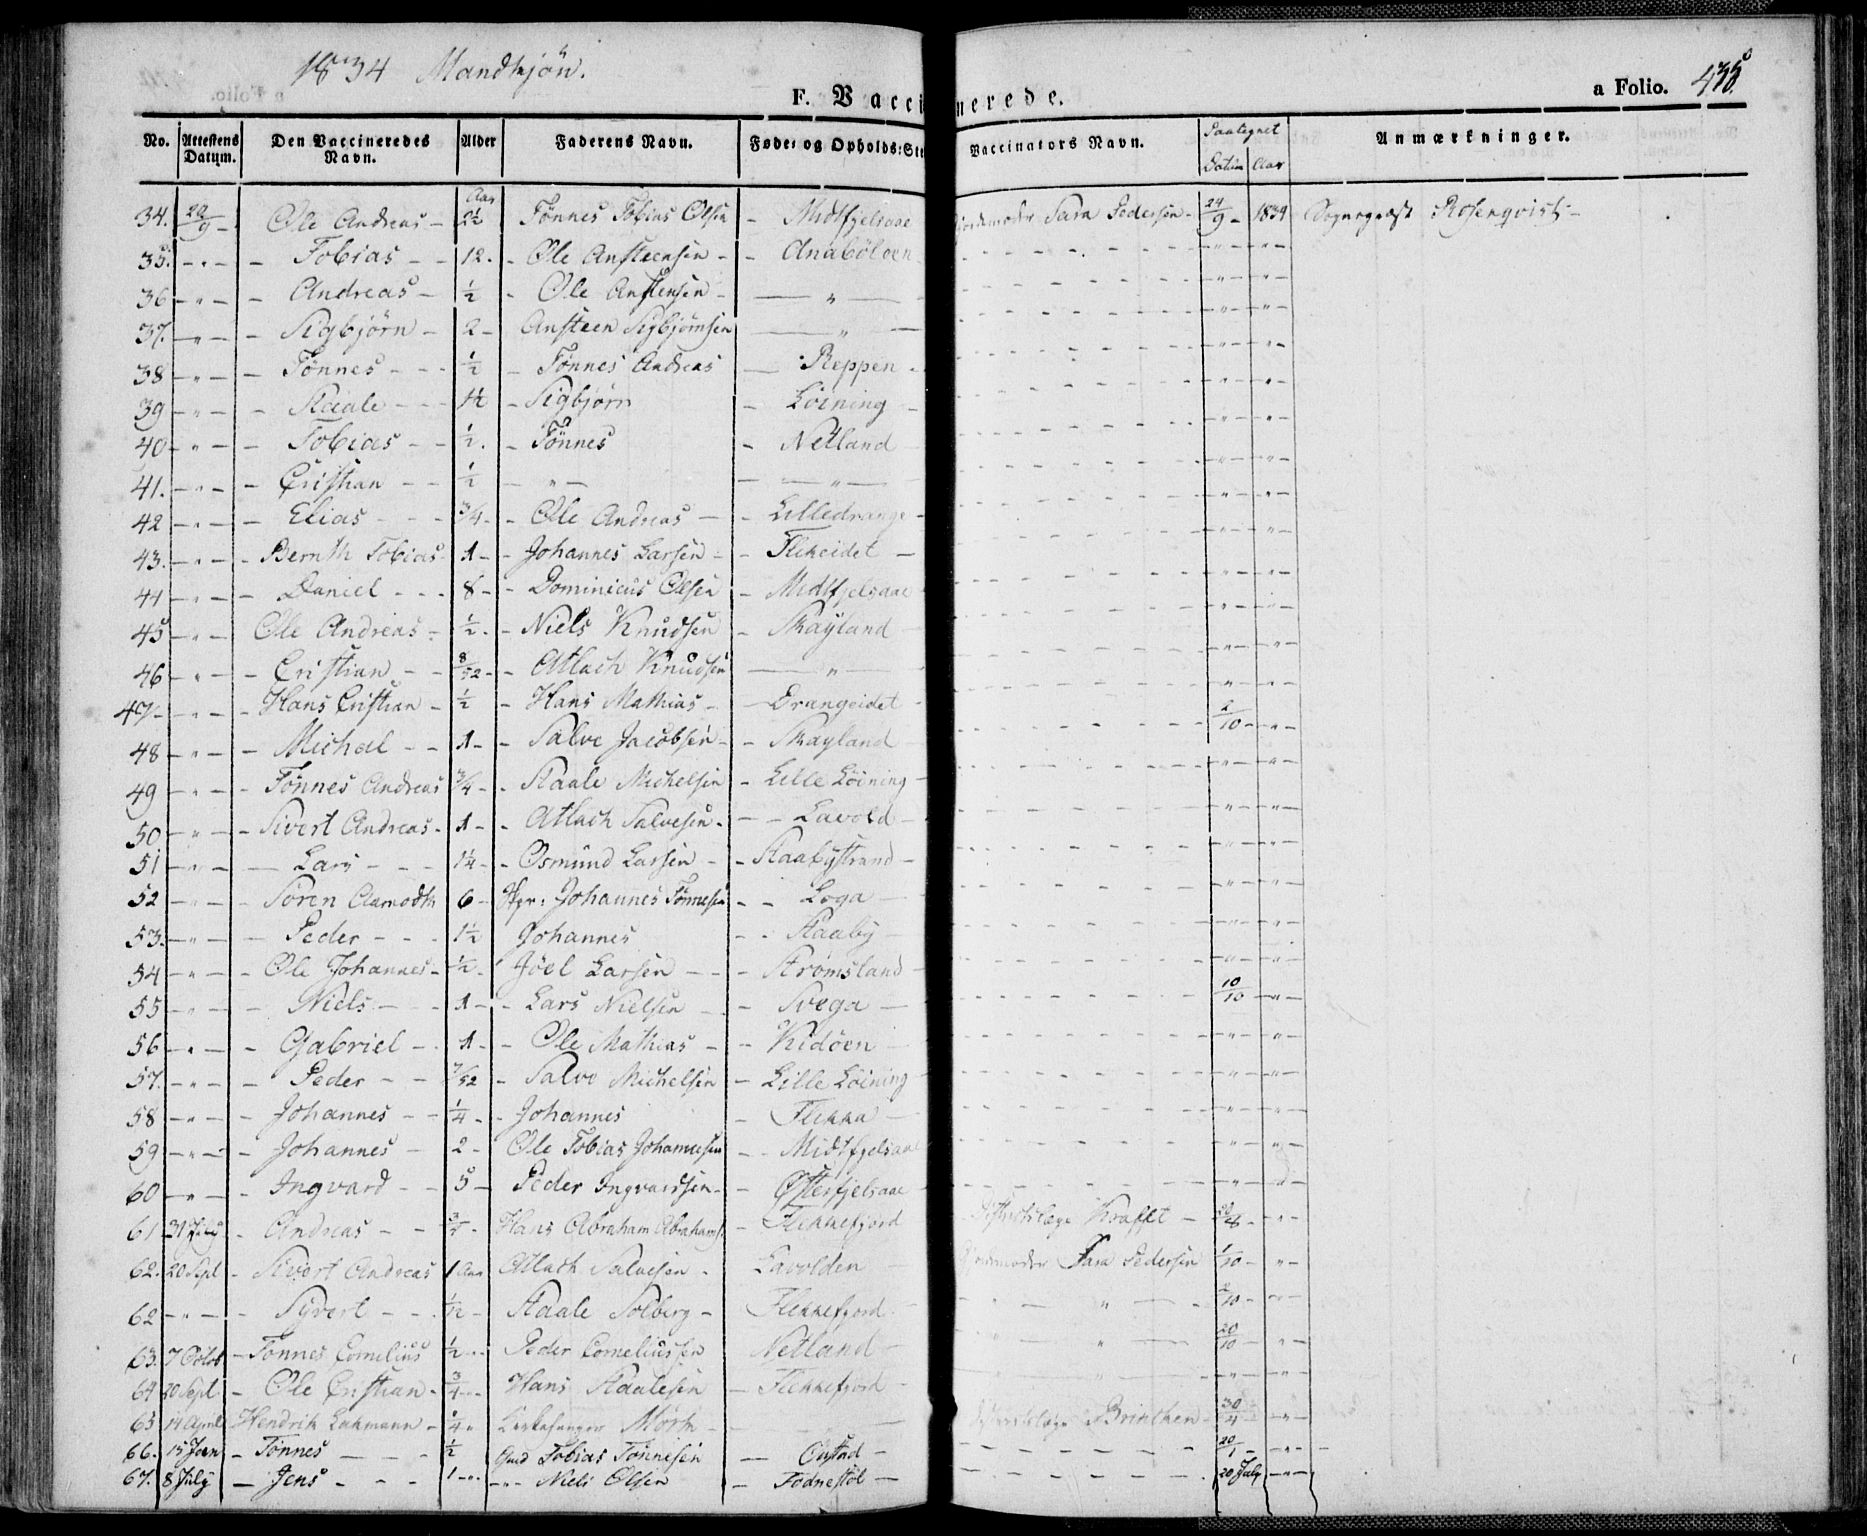 1834 Mandkjön.
F. Vaccinerede.
a Folio. 435.
No. | Attestens Datum. | Den Vaccineredes Navn. | Alder | Faderens Navn. | Føde: og Opholds:Ste | Vaccinators Navn. | Paategnet Datum | Aar | Anmærkninger.
34. 20/9 - Ole Andreas - Aar 2½ Tönnes Tobias Olsen - Midtfjelsaae Jordemoder Sara Pedersen - 24/9 - 1834 Sogneprest Rosenqvist -
35. - " - - Tobias - - 12 - - Ole Ansteensen - - Anabölven - " - - " -
36 - " - - Andreas - ½ - Ole Anstensen - " - " - - " -
37. - " - - Sigbjörn - 2 - Ansteen Sigbjörnsen - " - - " - - " -
38 - " - - Tönnes - - - ½ - Tönnes Andreas - Reppen - " - - " -
39 - " - - Staale - - - 1½ - Sigbjörn - Löining - " - - " -
40 - " - - Tobias - - ½. - Tönnes - Netland - " - - " -
41. - " - - Cristian - - ½ - " - - " - - " - - " -
42 - " - - Elias - - - ¾ - - Ole Andreas - - Lilledrange - " - - " -
43. - " - - Bernth Tobias 1 - - Johannes Larsen - - Flikeidet - - " - - " -
44 - " - - Daniel - - - 8 - - Dominicus Olsen - Midtfjelsaae - " - - " -
45 - " - Ole Andreas - ½ - - Niels Knudsen - Skayland - " - - " -
46 - " - - Cristian - - 8/52 - - Atlach Knudsen - " - - " - - " -
47 - - " - - Hans Cristian - ½ - Hans Mathias - - Drangeidet 2/10 - - " -
48 - " - - Michal - - 1 - - Salve Jacobsen - - Skayland - " - - " -
49 - " - - Tönnes Andreas ¾ - - Staale Michelsen - Lille Löining - " - - " -
50 - " - - Sivert Andreas - 1 - - Atlach Salvesen - - - Lavold - - " - - " -
51 - " - - Lars - - - 1¼ - - Osmund Larsen - - Staabystrand - - " - - " -
52 - " - - Sören Aamodth 6 - Skpr: Johannes Tönnesen - - Loga - - " - - " -
53. - " - - Peder - - - 1½ Johannes - - Staaby - " - - " -
54 - " - - Ole Johannes - ½ - Joel Larsen - - - Strömsland - " - - " -
55 - " - - Niels - - 1 - - Lars Nielsen - - Svega - 10/10 - - " -
56 - " - - Gabriel - - 1 - - Ole Mathias - - Kidöen - " - - " -
57. - " - - Peder - - 7/52 - Salve Michelsen - Lille Löining - " - - " -
58 - " - - Johannes - - ¼ - - Johannes - Flikka - - " - - " -
59 - " - - Johannes - 2 - Ole Tobias Johannesen - - Midtfjelsaae - " - - " -
60 - " - - Ingvard - - 5 - Peder Ingvardsen - - Östefjelsaae - " - - " -
61 31 July - Andreas - - ¾ - Hans Abraham Abrahams. - Flekkefjord Districtslæge Krafft - 20/8 - - " -
62. 20 Sept - Sivert Andreas 1 Aar Atlach Salvesen - Lavolden Jordemoder Sara Pedersen 1/10 - - " -
62 - " - - Syvert - - - ½ - Staale Solberg - Flekkefjord - - " - 2/10 - - " -
63. 7 Octob - Tönnes Cornelius ½ - - Peder Corneliussen Netland - - " - 20/10 - - " -
64 20 Sept - Ole Cristian - ¾ - - Hans Staalesen - Flekkefjord - - " - - " - - " -
65 14 April Hendrik Lahmann - ¼ " Kirkesanger Mörch - Districtslæge Brinchen 30/4 - - " -
66. 15 Jan - Tönnes - - - ½ Gmd Tobias Tönnesen - Ovstad - 20/1 - - " -
67. 8 July - Jens - - - 1 - " - - " - Niels Olsen - Fodnestöl - 20 July - " -